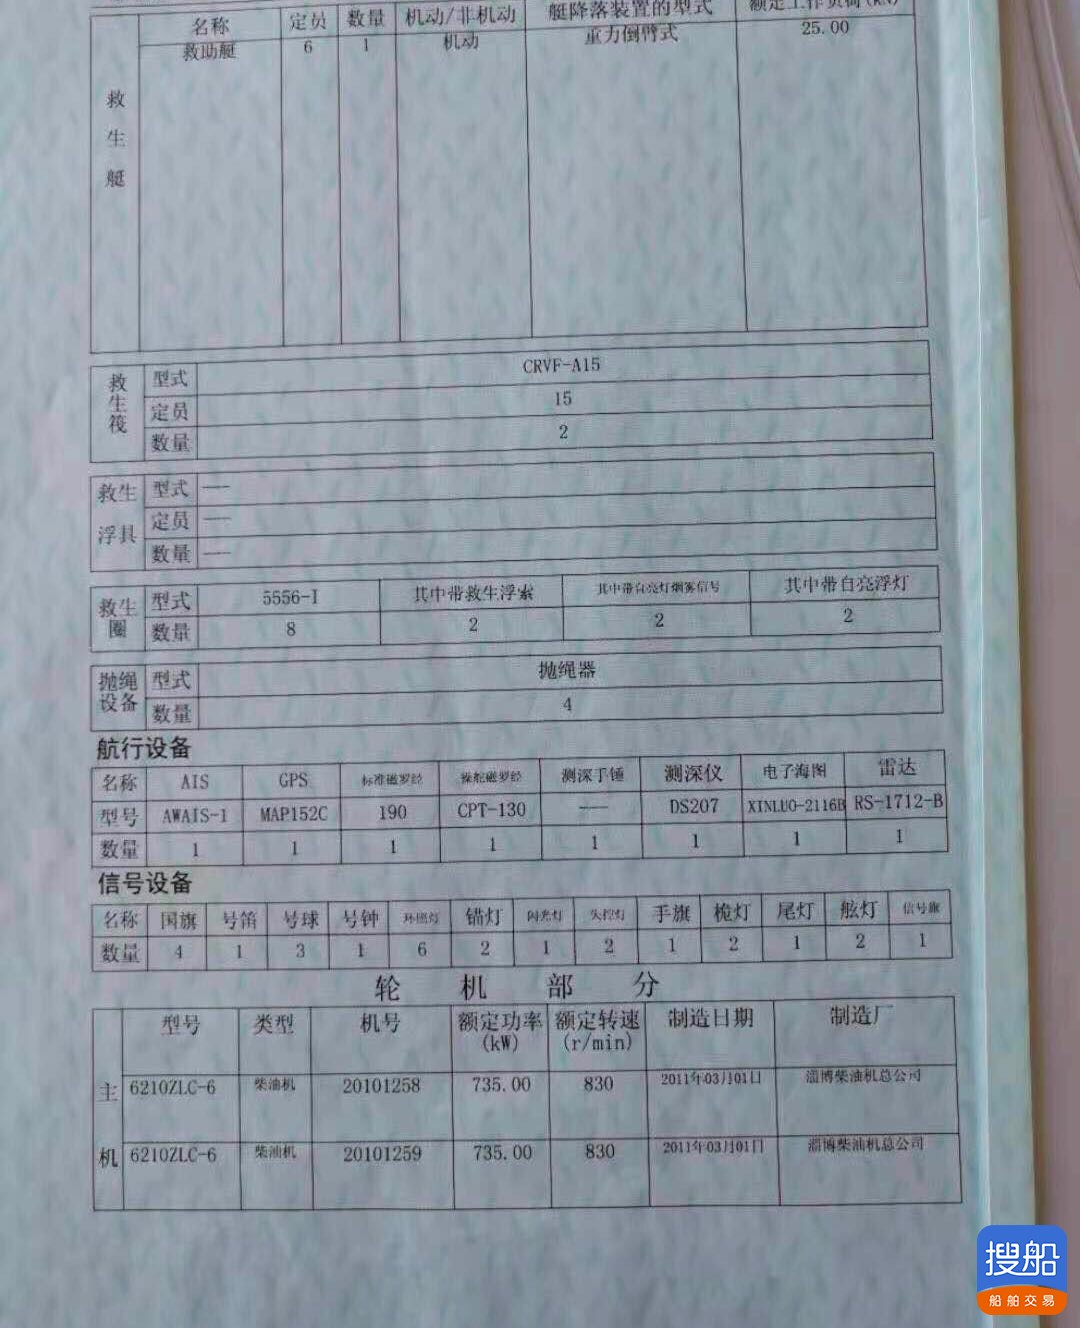 名称 定员 数量 机动/非机动 艇降落装置的型式 额定工作负荷(kN)
救生艇
救助艇 6 1 机动 重力倒臂式 25.00
救生筏 型式 CRVF-A15
定员 15
数量 2
救生浮具 型式 ——
定员 ——
数量 ——
救生圈 型式 5556-I 其中带救生浮索 其中带自亮灯烟雾信号 其中带自亮浮灯
数量 8 2 2 2
抛绳设备 型式 抛绳器
数量 4
航行设备
名称 AIS GPS 标准磁罗经 操舵磁罗经 测深手锤 测深仪 电子海图 雷达
型号 AWAIS-1 MAP152C 190 CPT-130 —— DS207 XINLUO-2116B RS-1712-B
数量 1 1 1 1 1 1 1 1
信号设备
名称 国旗 号笛 号球 号钟 环照灯 锚灯 闪光灯 失控灯 手旗 桅灯 尾灯 舷灯 信号旗
数量 4 1 3 1 6 2 1 2 1 2 1 2 1
轮机部分
型号 类型 机号 额定功率(kW) 额定转速(r/min) 制造日期 制造厂
主机
6210ZLC-6 柴油机 20101258 735.00 830 2011年03月01日 淄博柴油机总公司
6210ZLC-6 柴油机 20101259 735.00 830 2011年03月01日 淄博柴油机总公司
搜船
船舶交易